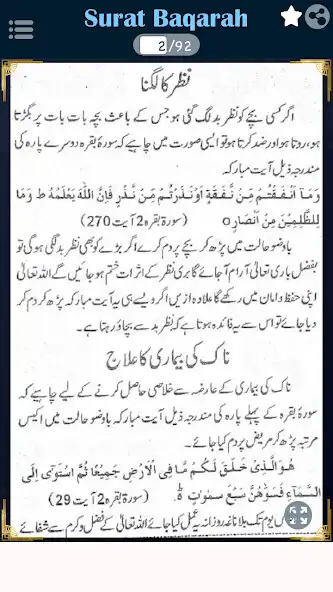 Surat Baqarah
2 /92
نظر کا لگنا
اگر کسی بچے کو نظر بد لگ گئی ہو جس کے باعث بچہ بات بات پر بگڑتا
ہو، روتا ہو اور ضد کرتا ہو تو ایسی صورت میں چاہیے کہ سورۂ بقرہ دوسرے پارہ کی
مندرجہ ذیل آیت مبارکہ
وَمَآ اَنْفَقْتُمْ مِّنْ نَّفَقَةٍ اَوْنَذَرْتُمْ مِّنْ نَّذْرٍ فَاِنَّ اللّٰهَ يَعْلَمُهٗ ط وَمَا
لِلظّٰلِمِيْنَ مِنْ اَنْصَارٍ ○ (سورۂ بقرہ 2 آیت 270)
باوضو حالت میں پڑھ کر بچے پر دم کرے اگر بڑے کو بھی نظر بد لگی ہو گی تو
بفضل باری تعالیٰ آرام آ جائے گا بری نظر کے اثرات ختم ہو جائیں گے اللہ تعالیٰ
اپنی حفظ و امان میں رکھے گا علاوہ ازیں اگر ویسے ہی یہ آیت مبارکہ پڑھ کر دم کر
دیا جائے تو اس سے یہ فائدہ ہوتا ہے کہ نظر بد سے بچاؤ رہتا ہے۔
ناک کی بیماری کا علاج
ناک کی بیماری کے عارضہ سے خلاصی حاصل کرنے کے لیے چاہیے کہ
سورۂ بقرہ کے پہلے پارہ کی مندرجہ ذیل آیت مبارکہ باوضو حالت میں اکیس
مرتبہ پڑھ کر مریض پر دم کیا جائے۔
هُوَ الَّذِيْ خَلَقَ لَكُمْ مَّا فِى الْاَرْضِ جَمِيْعًا ثُمَّ اسْتَوٰٓى اِلَى
السَّمَآءِ فَسَوّٰىهُنَّ سَبْعَ سَمٰوٰتٍ ط (سورۂ بقرہ 2 آیت 29)
یوم تک بلا ناغہ روزانہ یہ عمل کیا جائے اللہ تعالیٰ کے فضل و کرم سے شفائے